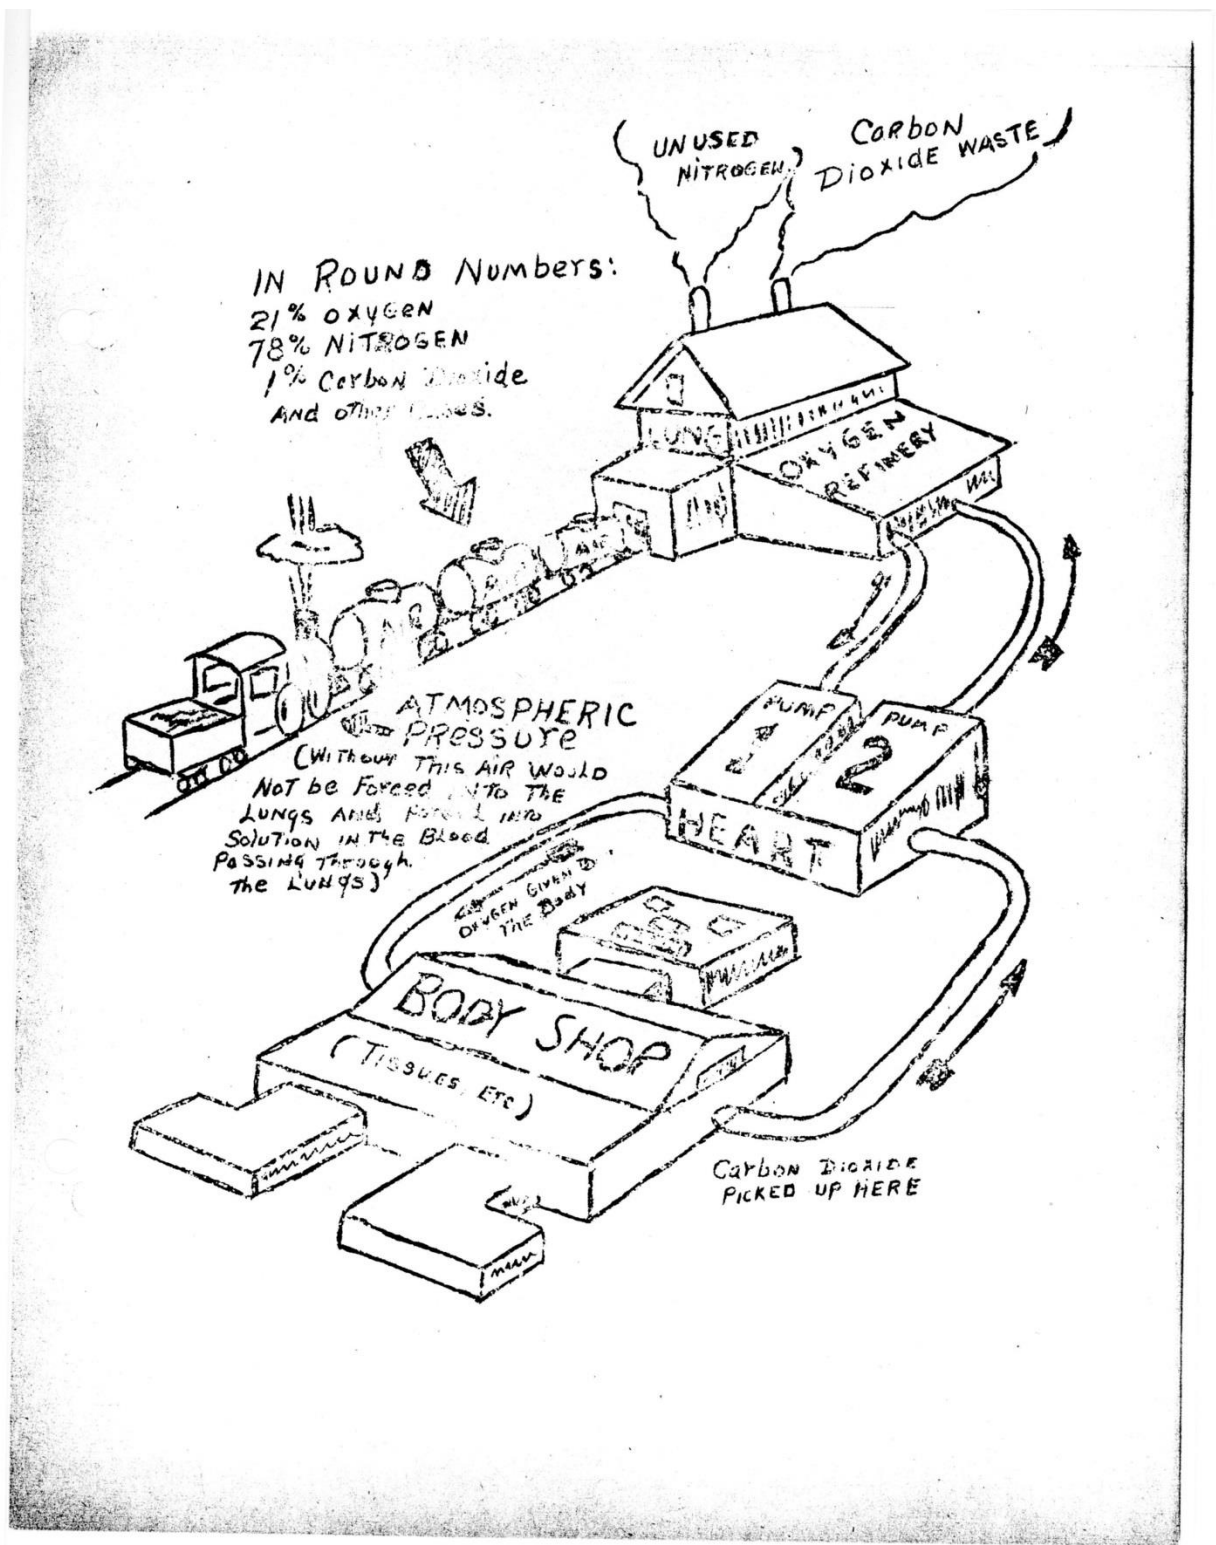 UNUSED
NITROGEN
CARBON
DIOXIDE WASTE
IN ROUND Numbers:
21% OXYGEN
78% NITROGEN
1% Carbon Dioxide
AND other Gases.
LUNG
OXYGEN
REFINERY
AIR
ATMOSPHERIC
PRESSURE
(WITHOUT THIS AIR WOULD
NOT be Forced INTO THE
LUNGS AND Forced INTO
SOLUTION IN THE BLOOD
PASSING THROUGH
The LUNGS)
PUMP
1
PUMP
2
HEART
OXYGEN GIVEN TO
THE BODY
BODY SHOP
(TISSUES, ETC)
Carbon DIOXIDE
PICKED UP HERE